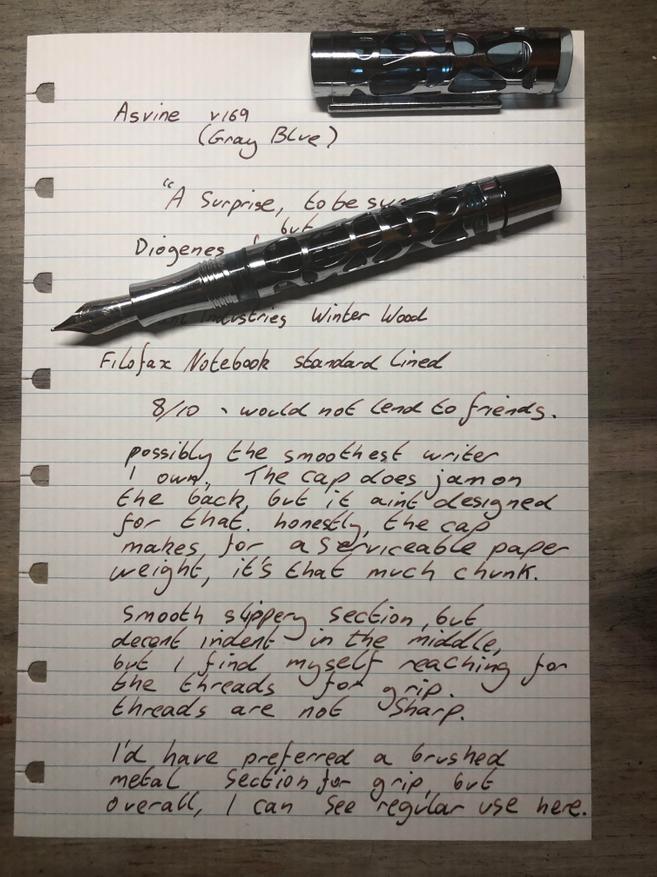 Asvine V169
(Gray Blue)
"A Surprise, to be
but
Diogenes
Industries Winter Wood
Filofax Notebook standard lined
8/10 - would not lend to friends.
possibly the smoothest writer
I own. The cap does jam on
the back, but it aint designed
for that. honestly, the cap
makes for a serviceable paper
weight, it's that much chunk.
Smooth slippery section, but
decent indent in the middle,
but I find myself reaching for
the threads for grip.
threads are not sharp.
I'd have preferred a brushed
metal section for grip, but
overall, I can see regular use here.